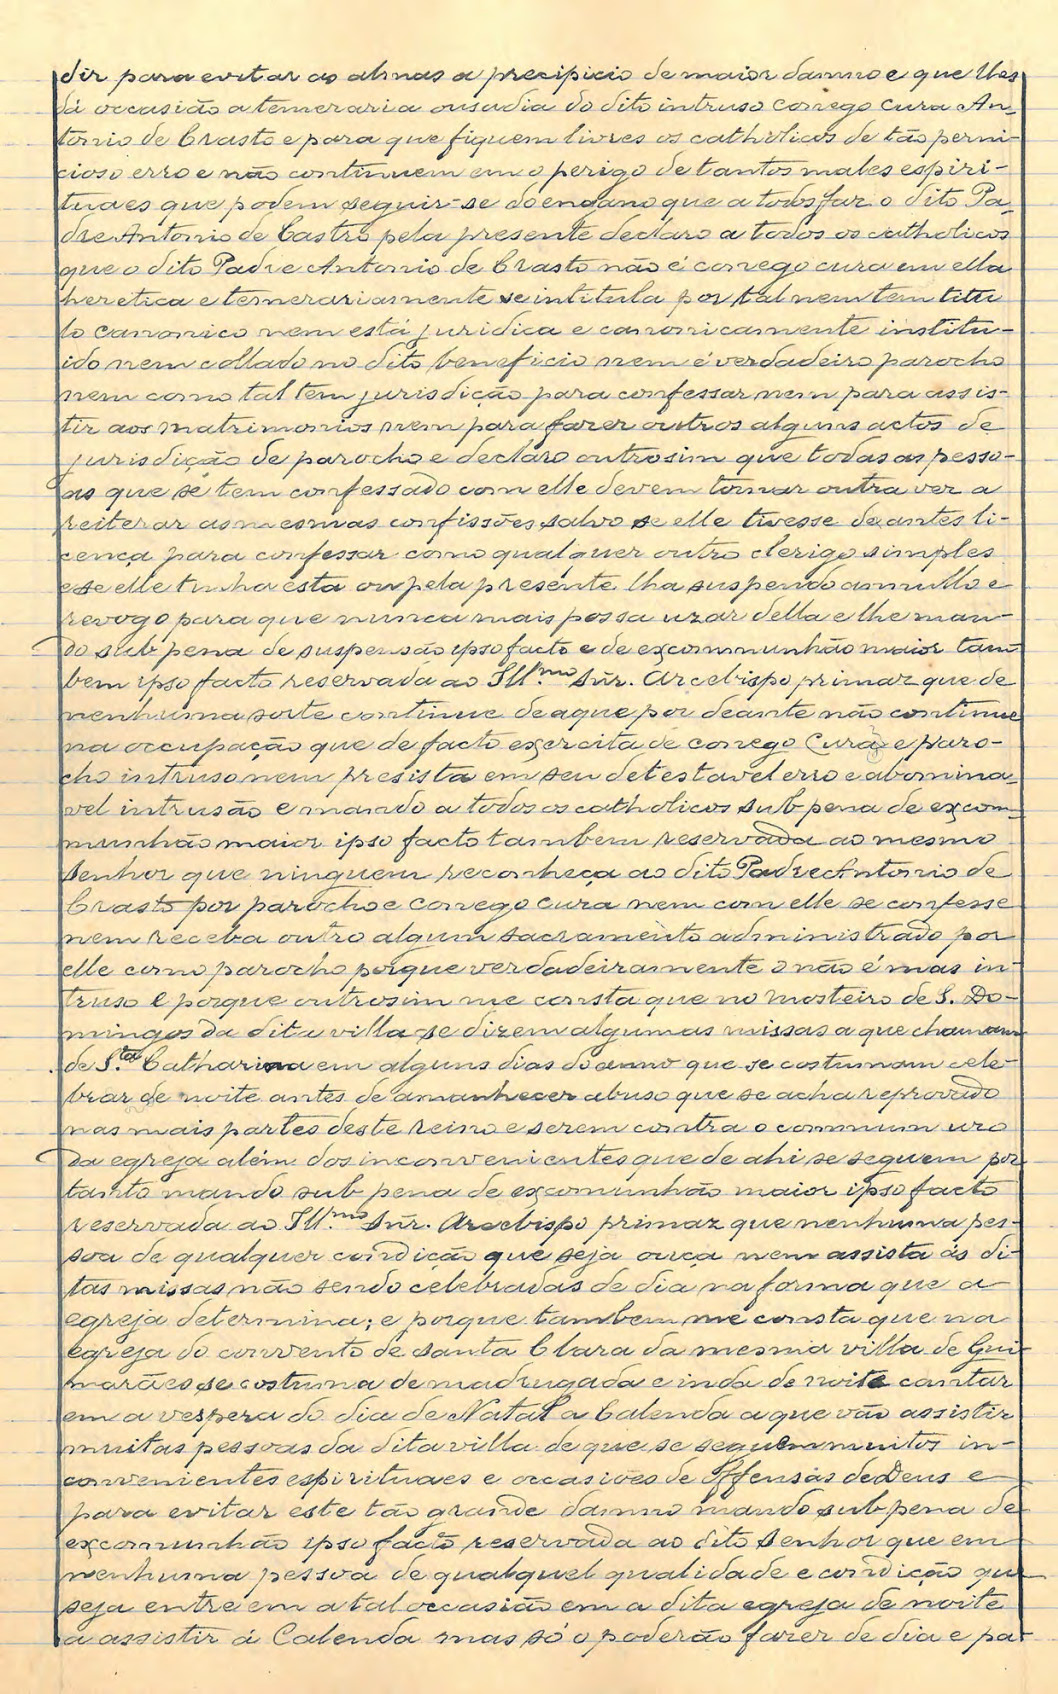 dir para evitar as almas a precipicio de maior damno e que lhes
dá occasião a temeraria ousadia do dito intruso conego cura An-
tonio de Crasto e para que fiquem livres os catholicos de tão perni-
cioso erro e não continuem em o perigo de tantos males espiri-
tuaes que podem seguir-se do engano que a todos faz o dito Pa-
dre Antonio de Castro pela presente declaro a todos os catholicos
que o dito Padre Antonio de Crasto não é conego cura em ella
heretica e temerariamente se intitula por tal nem tem titu
lo canonico nem está juridica e canonicamente institu-
ido nem collado no dito beneficio nem é verdadeiro parocho
nem como tal tem jurisdição para confessar nem para assis-
tir aos matrimonios nem para fazer outros alguns actos de
jurisdição de parocho e declaro outrosim que todas as pesso-
as que se tem confessado com elle devem tornar outra vez a
reiterar as mesmas confissões salvo se elle tivesse de antes li-
cença para confessar como qualquer outro clerigo simples
e se elle tinha esta eu pela presente lha suspendo annullo e
revogo para que nunca mais possa uzar della e lhe man-
do sub pena de suspensão ipso facto e de excommunhão maior tam
bem ipso facto reservada ao Ill.mo Snr. Arcebispo primaz que de
nenhuma sorte continue de aque por deante não continue
na occupação que de facto exercita de conego Cura e paro-
cho intruso nem presista em seu detestavel erro e abomina-
vel intrusão e mando a todos os catholicos sub pena de excom-
munhão maior ipso facto tambem reservada ao mesmo
Senhor que ninguem reconheça ao dito Padre Antonio de
Crasto por parocho e conego cura nem com elle se confesse
nem receba outro algum sacramento administrado por
elle como parocho porque verdadeiramente o não é mas in-
truso e porque outrosim me consta que no mosteiro de S. Do-
mingos da dita villa se dizem algumas missas a que chamam
de S.ta Catharina em alguns dias do anno que se costumam cele-
brar de noite antes de amanhecer abuso que se acha reprovado
nas mais partes deste reino e serem contra o commum uzo
da egreja além dos inconvenientes que de ahi se seguem por
tanto mando sub pena de excomunhão maior ipso facto
reservada ao Ill.mo Snr. Arcebispo primaz que nenhuma pes-
soa de qualquer condição que seja ouça nem assista ás di-
tas missas não sendo celebradas de dia na forma que a
egreja determina; e porque tambem me consta que na
egreja do convento de santa Clara da mesma villa de Gui-
marães se costuma de madrugada e inda de noite cantar
em a vespera do dia de Natal a Calenda a que vão assistir
muitas pessoas da dita villa de que se seguem muitos in-
convenientes espirituaes e occasiões de offensas de Deus e
para evitar este tão grande damno mando sub pena de
excomunhão ipso facto reservada ao dito Senhor que em
nenhuma pessoa de qualquel qualidade e condição que
seja entre em a tal occasião em a dita egreja de noite
a assistir á Calenda mas só o poderão fazer de dia e pa-